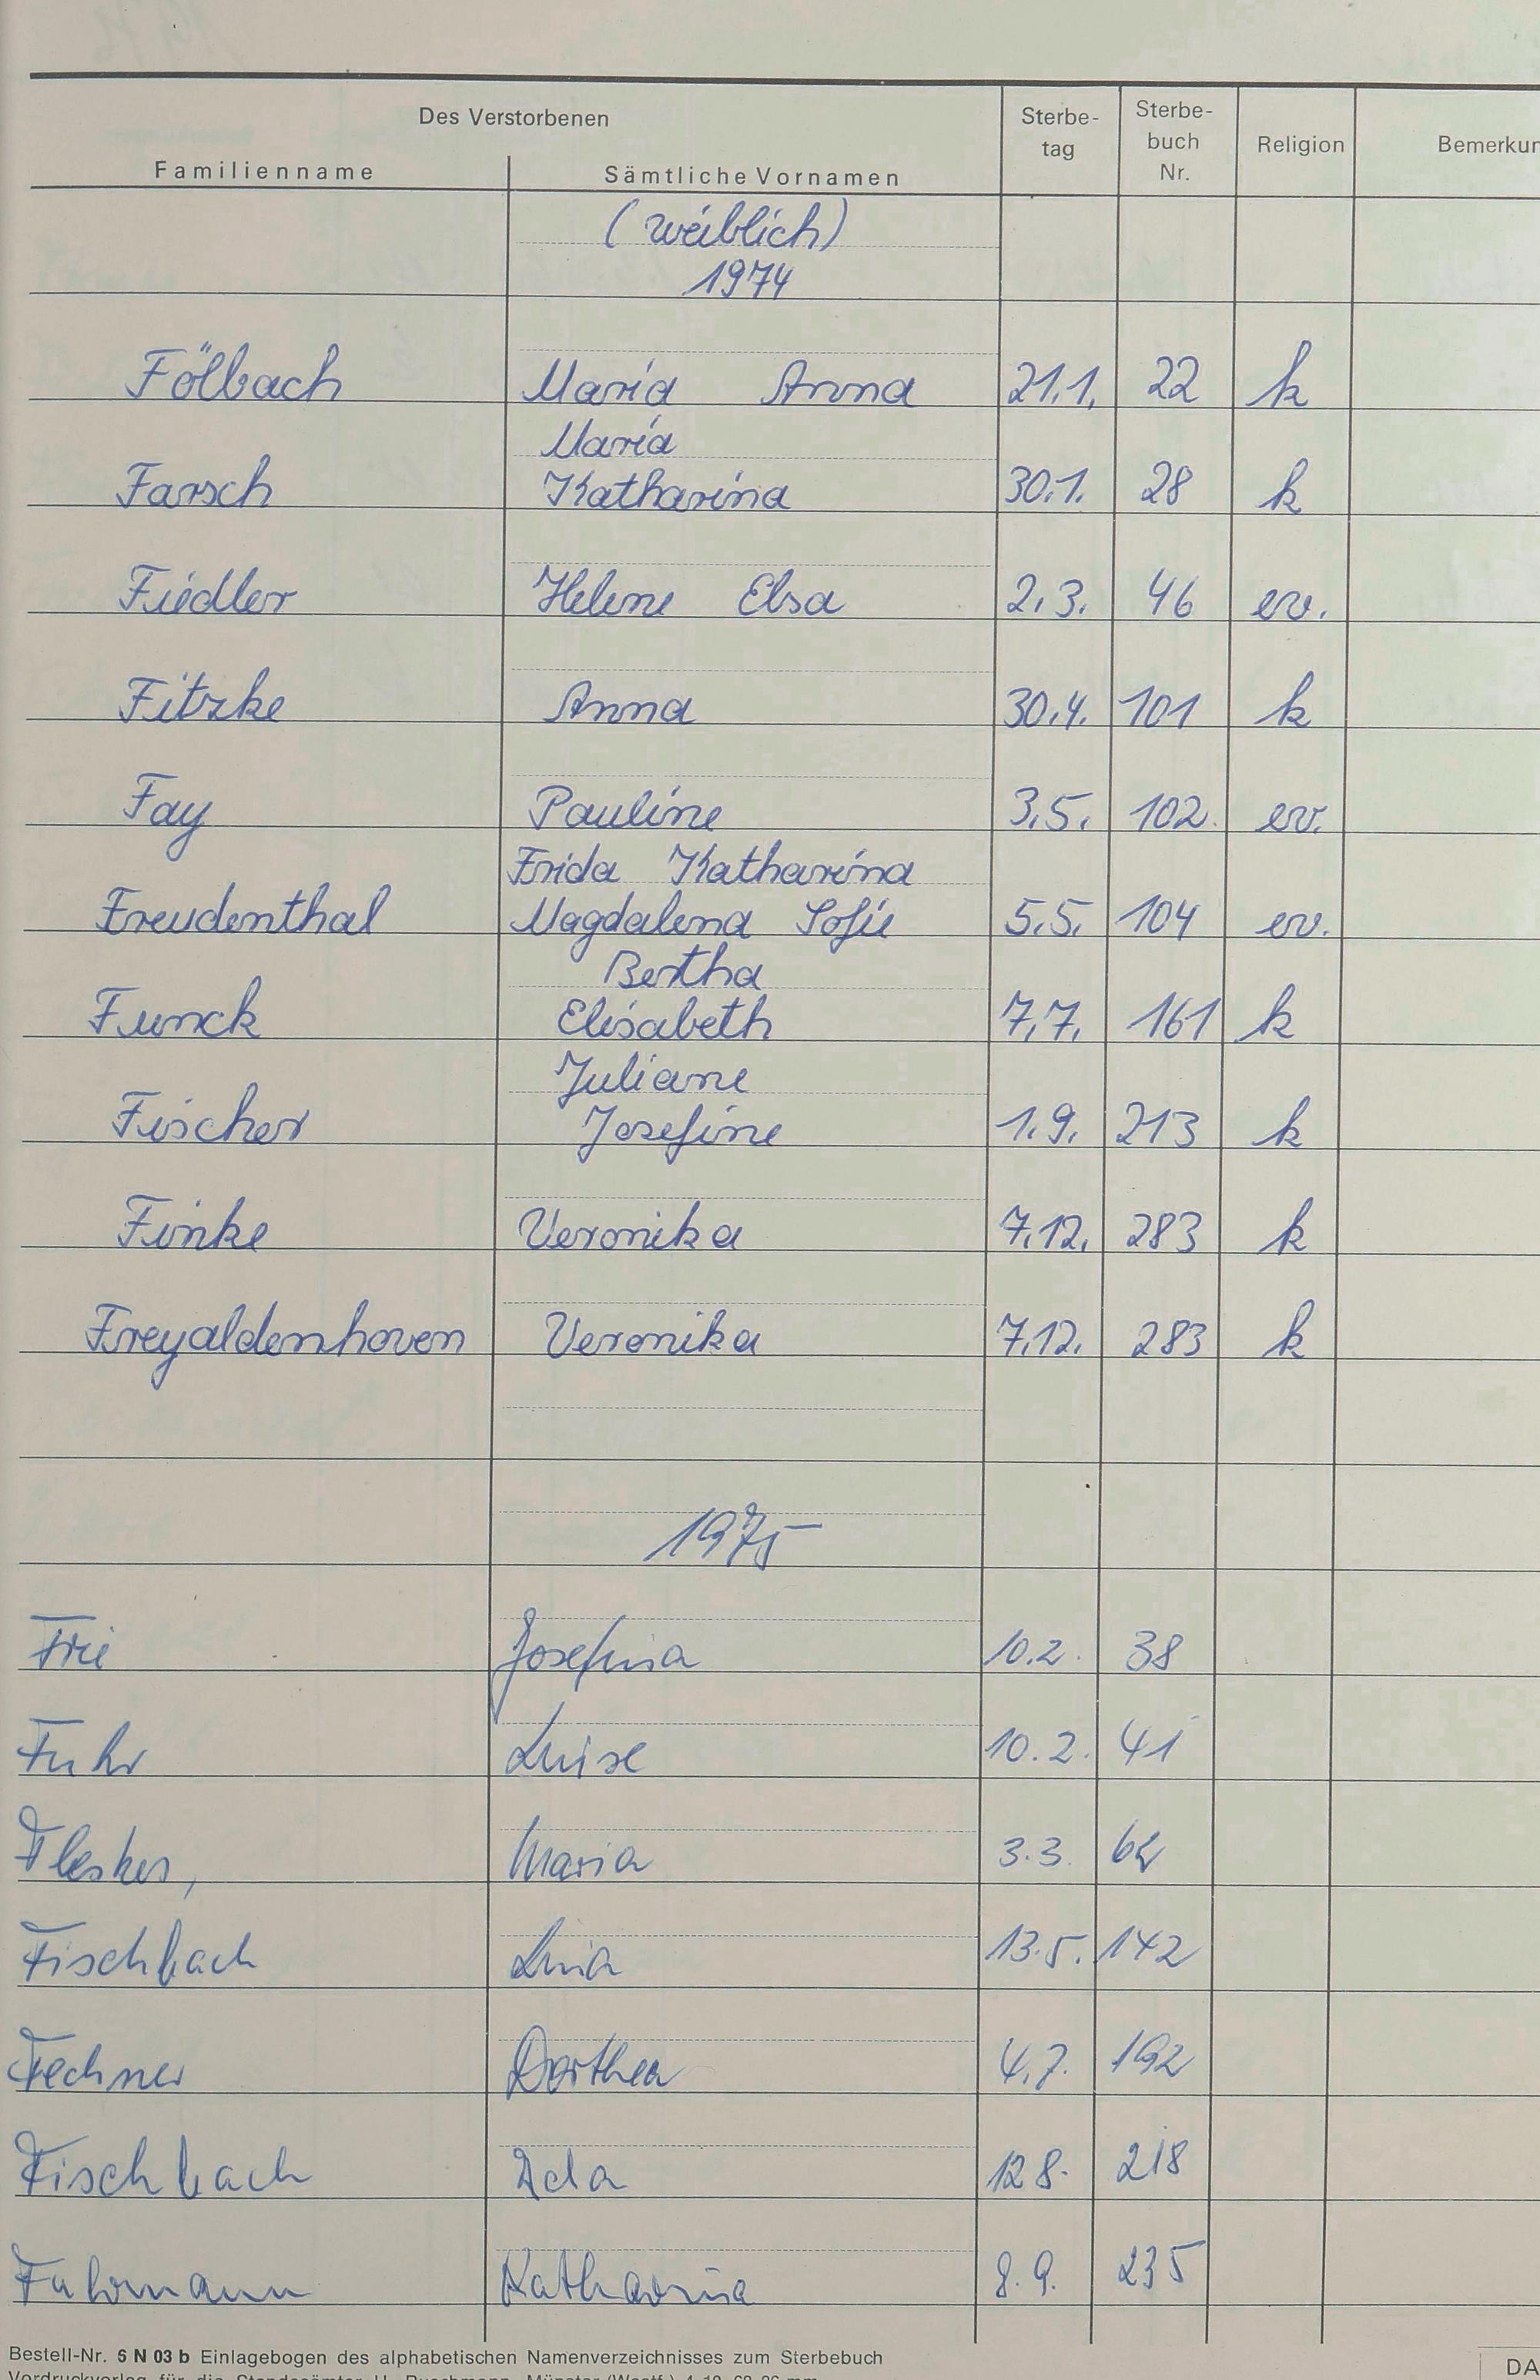 Des Verstorbenen
Familienname Sämtliche Vornamen Sterbe-tag Sterbe-buch Nr. Religion Bemerkun
(weiblich)
1974
Fölbach Maria Anna 21.1. 22 k
Maria
Farsch Katharina 30.1. 28 k
Fiedler Helene Elsa 2.3. 46 ev.
Fitzke Anna 30.4. 101 k
Fay Pauline 3.5. 102 ev.
Frida Katharina
Freudenthal Magdalena Sofie 5.5. 104 ev.
Bertha
Funck Elisabeth 7.7. 161 k
Juliane
Fischer Josefine 1.9. 213 k
Finke Veronika 7.12. 283 k
Freyaldenhoven Veronika 7.12. 283 k
1975
Frie Josefina 10.2. 38
Fuhr Luise 10.2. 41
Flesker, Maria 3.3. 62
Fischbach Lina 13.5. 142
Fechner Dorthea 4.7. 192
Fischbach Ida 12 8. 218
Fuhrmann Katharina 8.9. 235
Bestell-Nr. 6 N 03 b Einlagebogen des alphabetischen Namenverzeichnisses zum Sterbebuch
DA